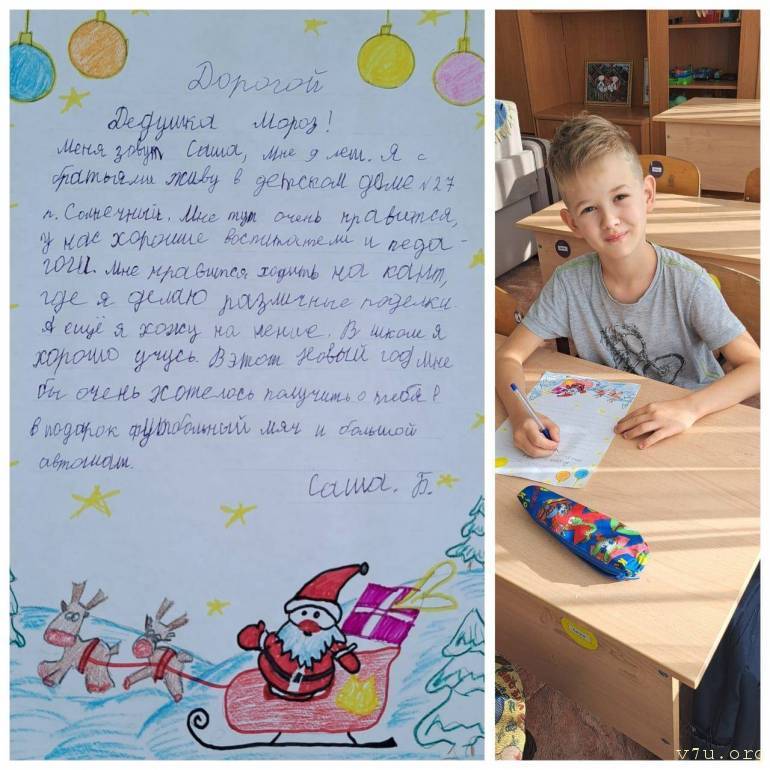 Дорогой
Дедушка Мороз!
Меня зовут Саша, мне 9 лет. Я с
братьями живу в детском доме №27
п. Солнечный. Мне тут очень нравится,
у нас хорошие воспитатели и педа-
гоги. Мне нравится ходить на кант,
где я делаю различные поделки.
А ещё я хожу на пение. В школ я
хорошо учусь. В этот Новый год мне
бы очень хотелось получить о тебя
в подарок футбольный мяч и большой
автомат.
Саша. Б.
v7u.org